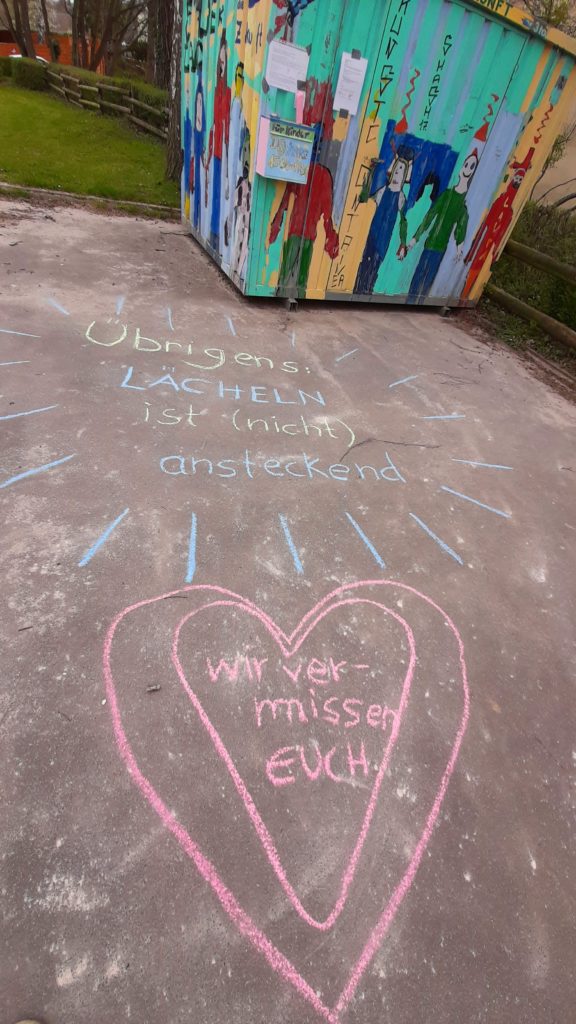 Für Kinder
Übrigens:
LÄCHELN
ist (nicht)
ansteckend
wir ver-
missen
EUCH